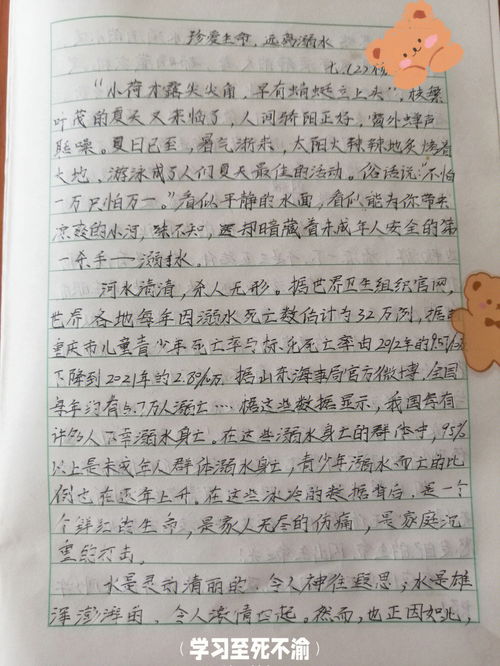 珍爱生命，远离溺水
七.(2)
“小荷才露尖尖角，早有蜻蜓立上头”，枝繁
叶茂的夏天又来临了，人间骄阳正好，窗外蝉声
聒噪。夏日已至，暑气渐来，太阳火辣辣地炙烤着
大地，游泳成了人们夏天最佳的活动。俗话说：“不怕
一万只怕万一。”看似平静的水面，看似能为你带来
凉爽的小河，殊不知，却暗藏着未成年人安全的第
一杀手——溺水。
河水清清，杀人无形。据世界卫生组织官网，
世界各地每年因溺水死亡数估计为32万例，据
重庆市儿童青少年死亡率与标化死亡率由2012年的9.5
下降到2021年的2.8%万。据山东海事局官方微博，全国
每年约有5.7万人溺亡…据这些数据显示，我国每有
许多人下幸溺水身亡。在这些溺水身亡的群体中，95%
以上是未成年人群体溺水身亡，青少年溺水而亡的比
例也在逐年上升。在这些冰冷的数据背后，是一个
个鲜红的生命，是家人无尽的伤痛，是家庭沉
重的打击。
水是灵动清丽的，令人神往遐思；水是雄
浑澎湃的，令人激情起。然而，也正因如此，
（学习至死不渝）